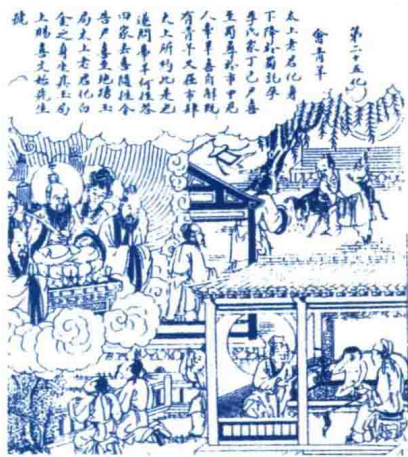 第二十五化
會青羊
太上老君化身
下降於蜀託孕
李氏家丁巳尹喜
至蜀尋於市中忽
人牽羊喜自解既
有青羊又在市肆
太上所約此是也
遂問牽羊何往答
回家去喜隨往令
告尹喜至地湧玉
局太上老君化白
金之身坐於玉局
上賜喜文始先生
號